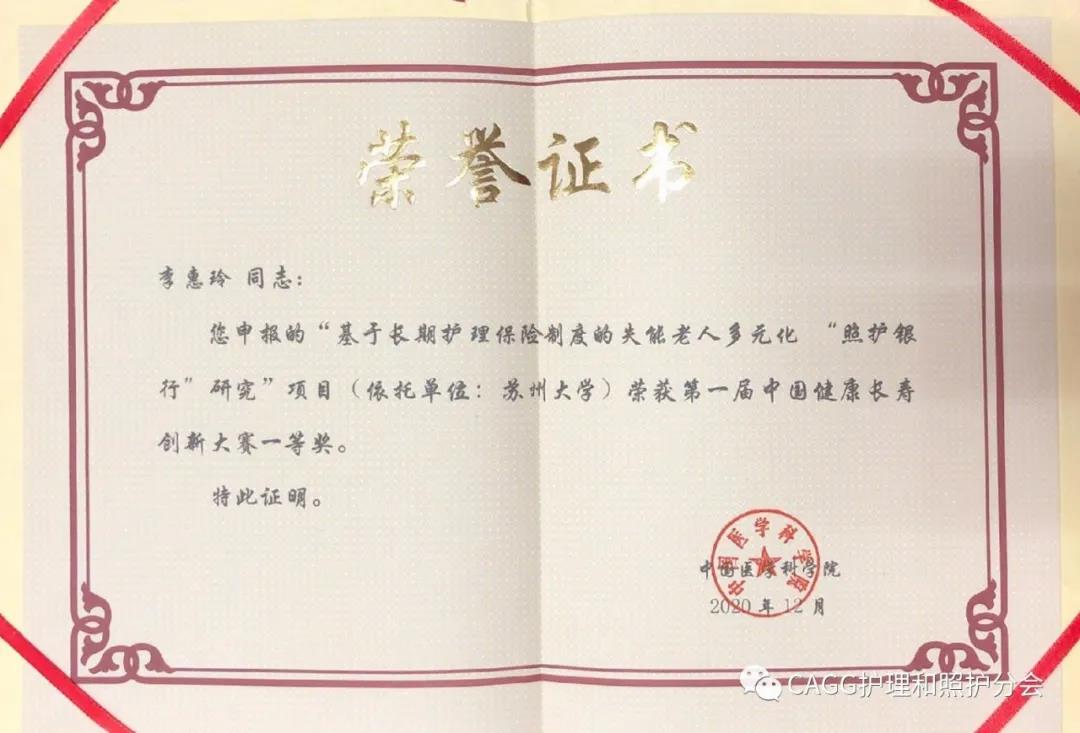 荣誉证书
李惠玲 同志：
您申报的“基于长期护理保险制度的失能老人多元化 “照护银
行”研究”项目（依托单位：苏州大学）荣获第一届中国健康长寿
创新大赛一等奖。
特此证明。
中国医学科学院
中国医学科学院
2020 年 12 月
CAGG护理和照护分会